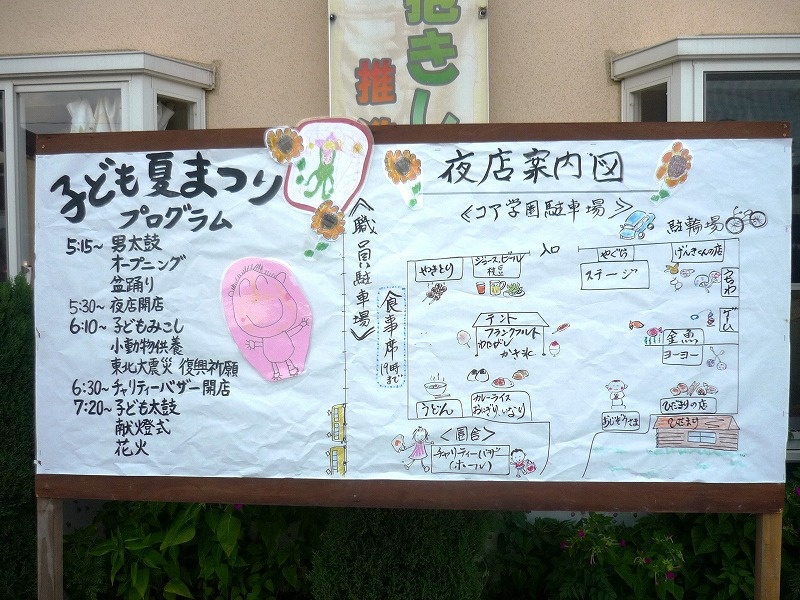 抱きし
推進
子ども夏まつり
プログラム
5:15~ 男太鼓
オープニング
盆踊り
5:30~ 夜店開店
6:10~ 子どもみこし
小動物供養
東北大震災 復興祈願
6:30~ チャリティーバザー開店
7:20~ 子ども太鼓
献燈式
花火
夜店案内図
《コア学園駐車場》
駐輪場
《職員駐車場》
食事席
19時まで
やきとり
ジュース、ビール
枝豆
入口
やぐら
ステージ
げんきくんの店
うちわ
ゲーム
金魚
ヨーヨー
テント
フランクフルト
かき氷
うどん
カレーライス
おにぎり、いなり
ひだまりの店
おじぞうさま
ひだまり
<園舎>
チャリティーバザー
(ホール)